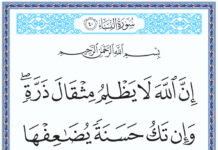 سورة النساء
بِسْمِ اللَّهِ الرَّحْمَٰنِ الرَّحِيمِ
إِنَّ اللَّهَ لَا يَظْلِمُ مِثْقَالَ ذَرَّةٍ ۖ
وَإِن تَكُ حَسَنَةً يُضَاعِفْهَا